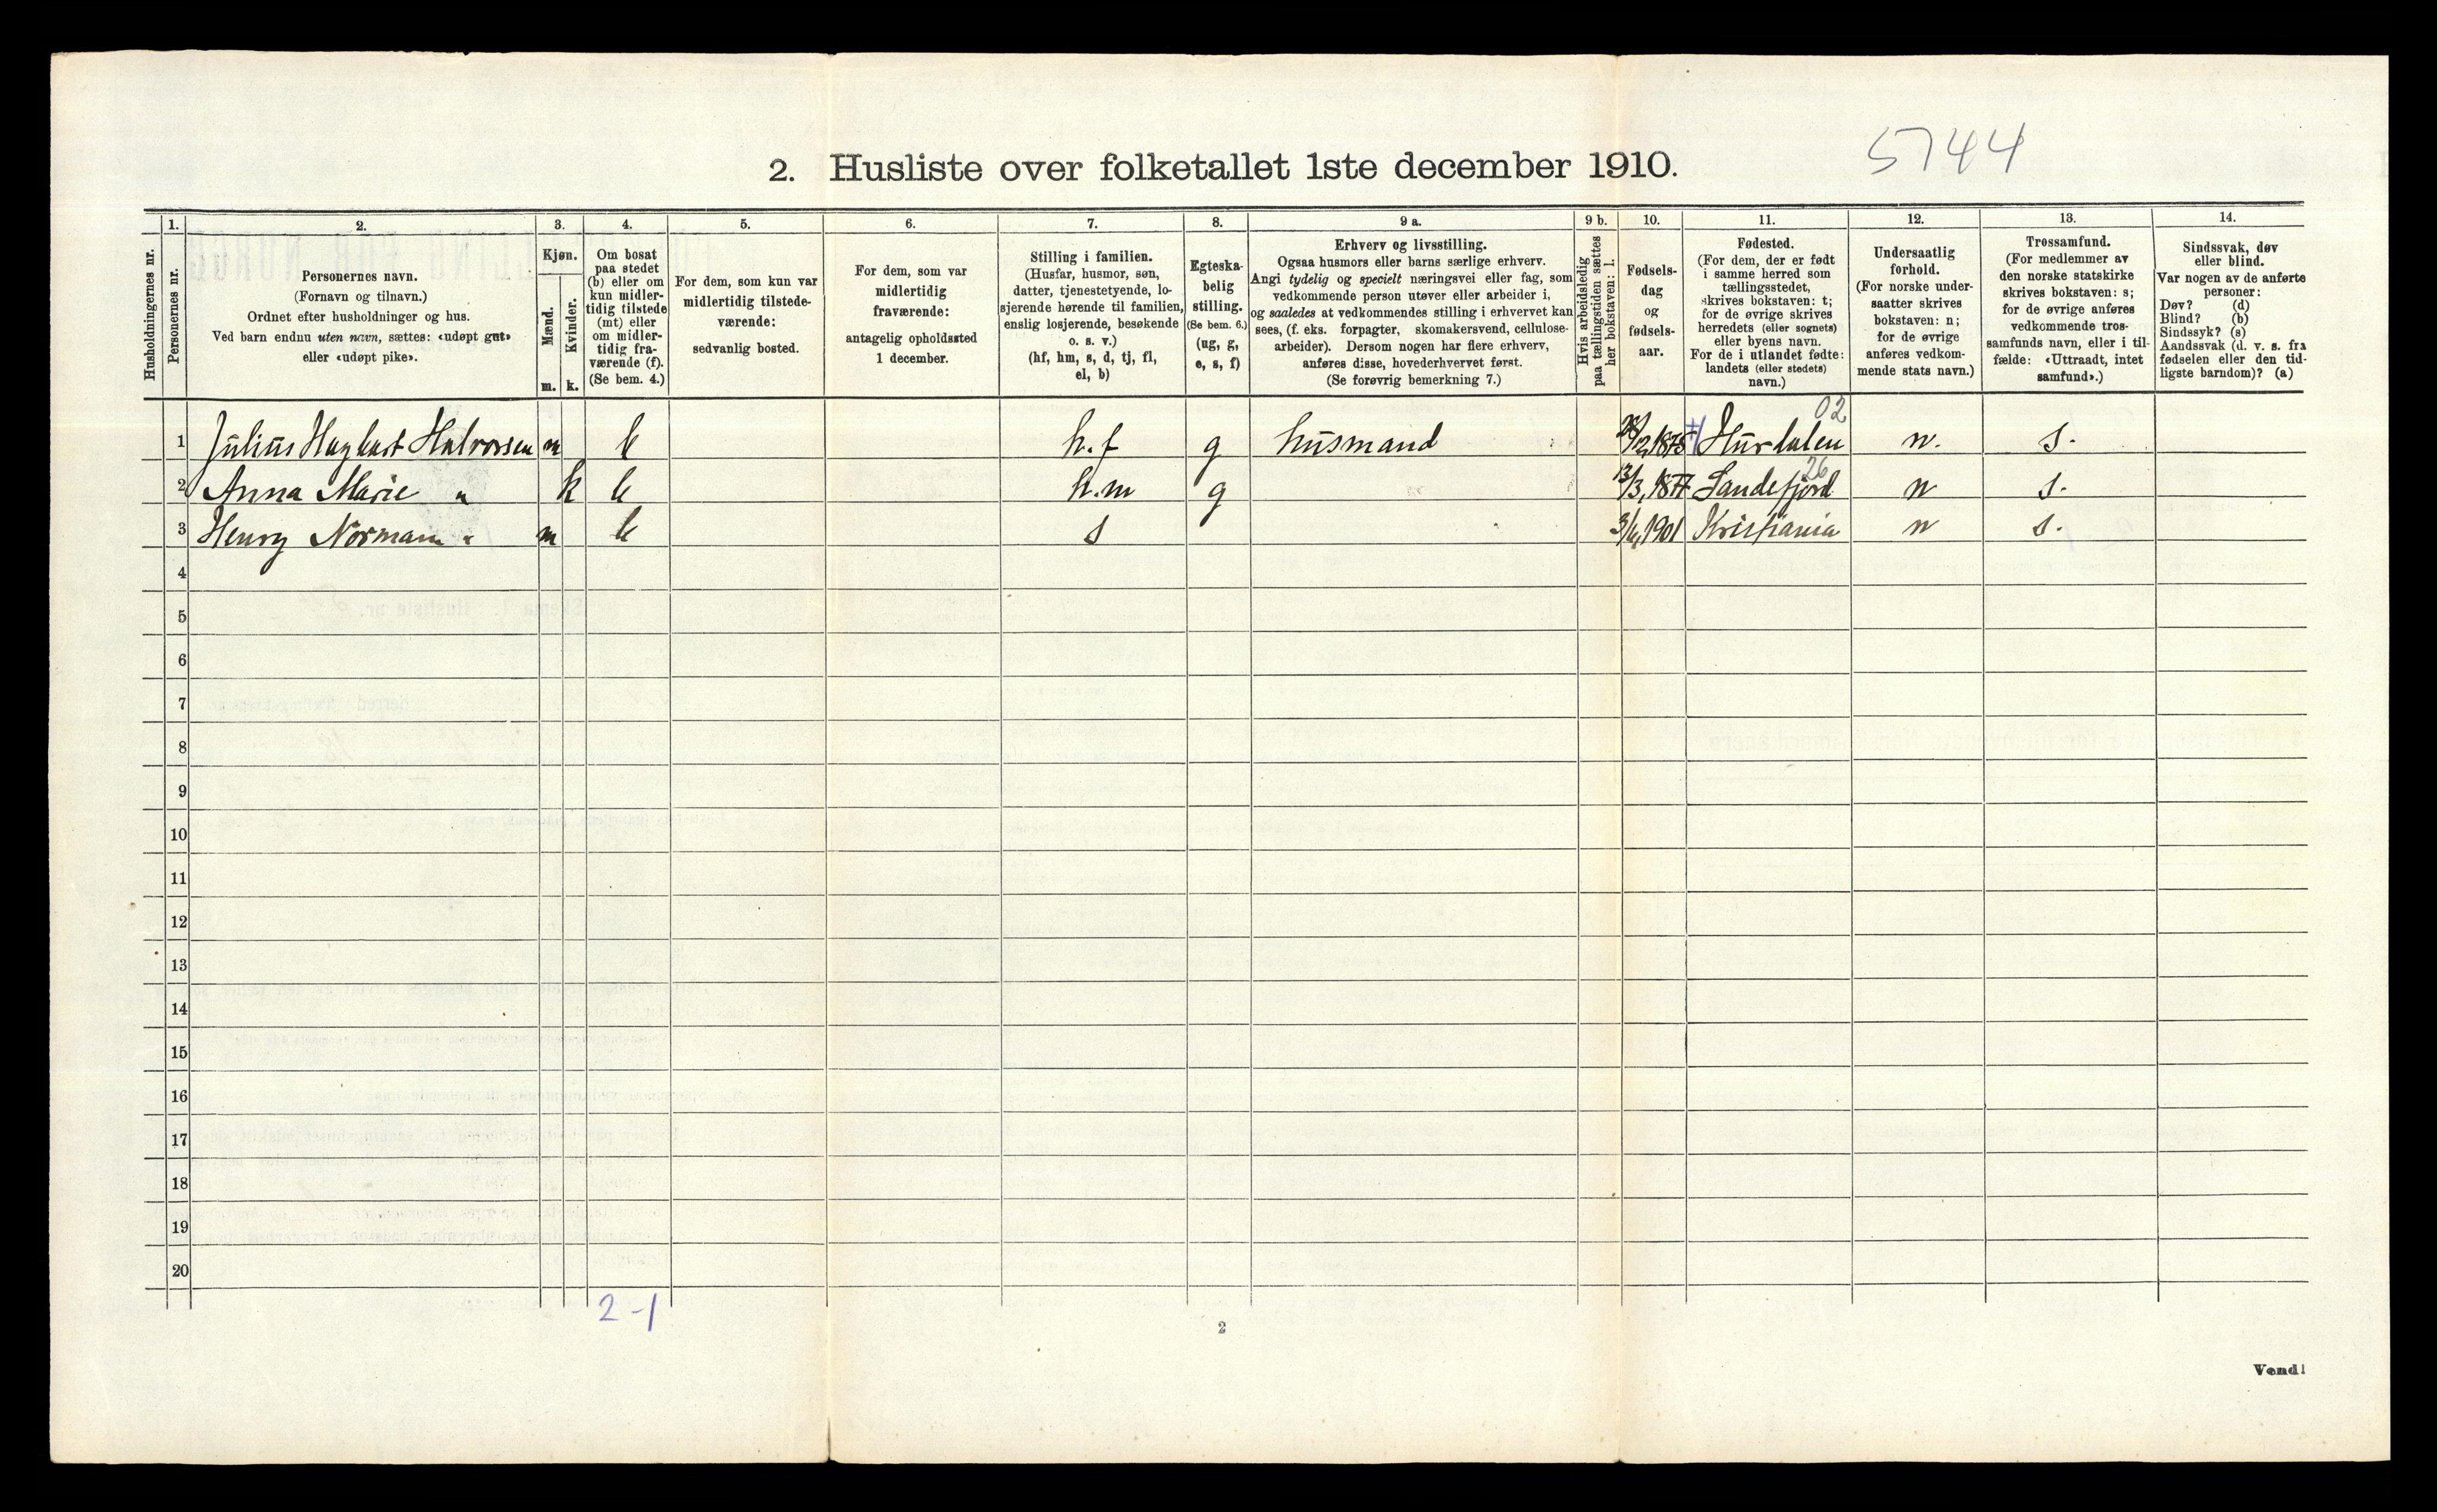 5744
2. Husliste over folketallet 1ste december 1910.
Husholdningernes nr.
1.
Personernes nr.
2.
Personernes navn.
(Fornavn og tilnavn.)
Ordnet efter husholdninger og hus.
Ved barn endnu uten navn, sættes: «udøpt gut»
eller «udøpt pike».
3.
Kjøn.
Mænd.
m.
Kvinder.
k.
4.
Om bosat
paa stedet
(b) eller om
kun midler-
tidig tilstede
(mt) eller
om midler-
tidig fra-
værende (f).
(Se bem. 4.)
5.
For dem, som kun var
midlertidig tilstede-
værende:
sedvanlig bosted.
6.
For dem, som var
midlertidig
fraværende:
antagelig opholdssted
1 december.
7.
Stilling i familien.
(Husfar, husmor, søn,
datter, tjenestetyende, lo-
sjerende hørende til familien,
enslig losjerende, besøkende
o. s. v.)
(hf, hm, s, d, tj, fl,
el, b)
8.
Egteska-
belig
stilling.
(Se bem. 6.)
(ug, g,
e, s, f)
9 a.
Erhverv og livsstilling.
Ogsaa husmors eller barns særlige erhverv.
Angi tydelig og specielt næringsvei eller fag, som
vedkommende person utøver eller arbeider i,
og saaledes at vedkommendes stilling i erhvervet kan
sees, (f. eks. forpagter, skomakersvend, cellulose-
arbeider). Dersom nogen har flere erhverv,
anføres disse, hovederhvervet først.
(Se forøvrig bemerkning 7.)
9 b.
Hvis arbeidsledig
paa tællingstiden sættes
her bokstaven: l.
10.
Fødsels-
dag
og
fødsels-
aar.
11.
Fødested.
(For dem, der er født
i samme herred som
tællingsstedet,
skrives bokstaven: t;
for de øvrige skrives
herredets (eller sognets)
eller byens navn.
For de i utlandet fødte:
landets (eller stedets)
navn.)
12.
Undersaatlig
forhold.
(For norske under-
saatter skrives
bokstaven: n;
for de øvrige
anføres vedkom-
mende stats navn.)
13.
Trossamfund.
(For medlemmer av
den norske statskirke
skrives bokstaven: s;
for de øvrige anføres
vedkommende tros-
samfunds navn, eller i til-
fælde: «Uttraadt, intet
samfund».)
14.
Sindssvak, døv
eller blind.
Var nogen av de anførte
personer:
Døv? (d)
Blind? (b)
Sindssyk? (s)
Aandssvak (d. v. s. fra
fødselen eller den tid-
ligste barndom)? (a)
02
1 Julius Hagbart Halvorsen m b h.f g husmand 1875 Hurdalen n. s.
26
2 Anna Marie " k b h.m g 13/3, 1877 Sandefjord n s.
3 Henry Norman " m b s 1901 Kristiania n s.
4
5
6
7
8
9
10
11
12
13
14
15
16
17
18
19
20
2-1
2
Vend!